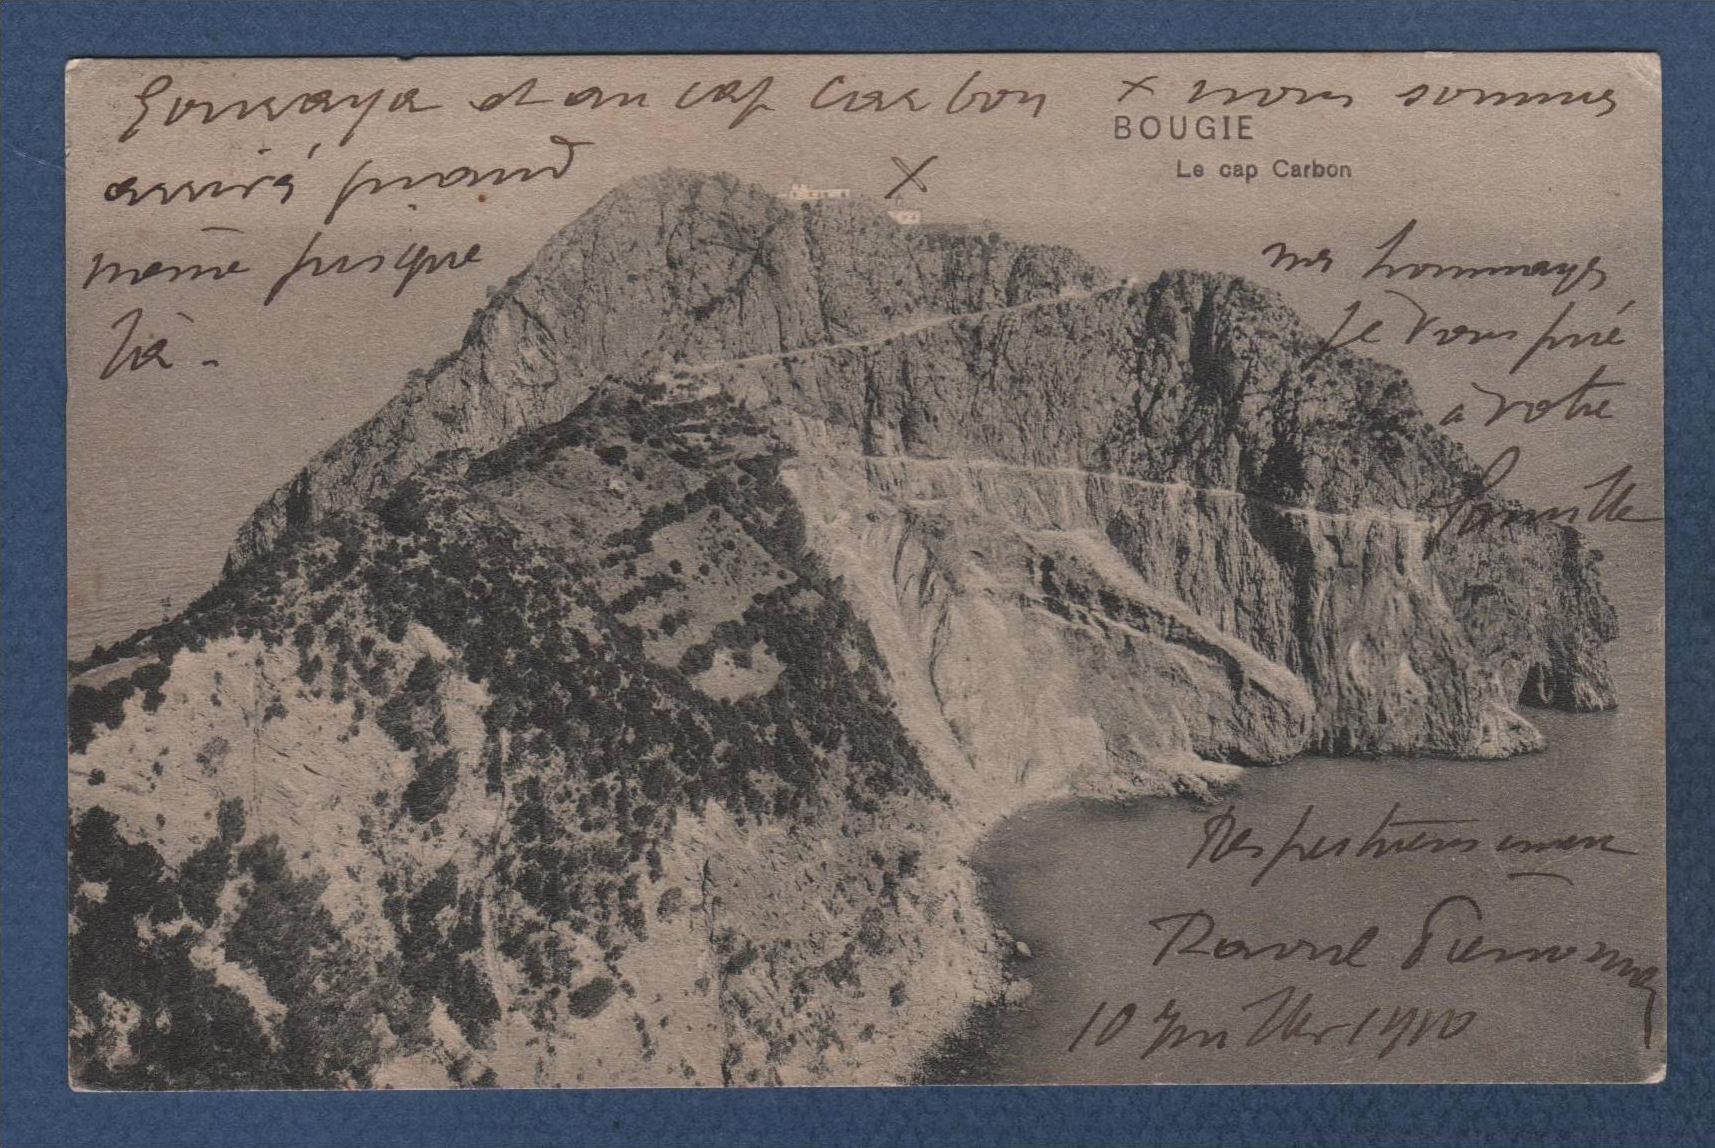 Gouraya et au cap Carbon x nous sommes
BOUGIE
Le cap Carbon
arrivé quand X
même jusque
là -
mes hommages
je vous prie
à votre
famille
Respectueusement
Raoul
10 Juillet 1910